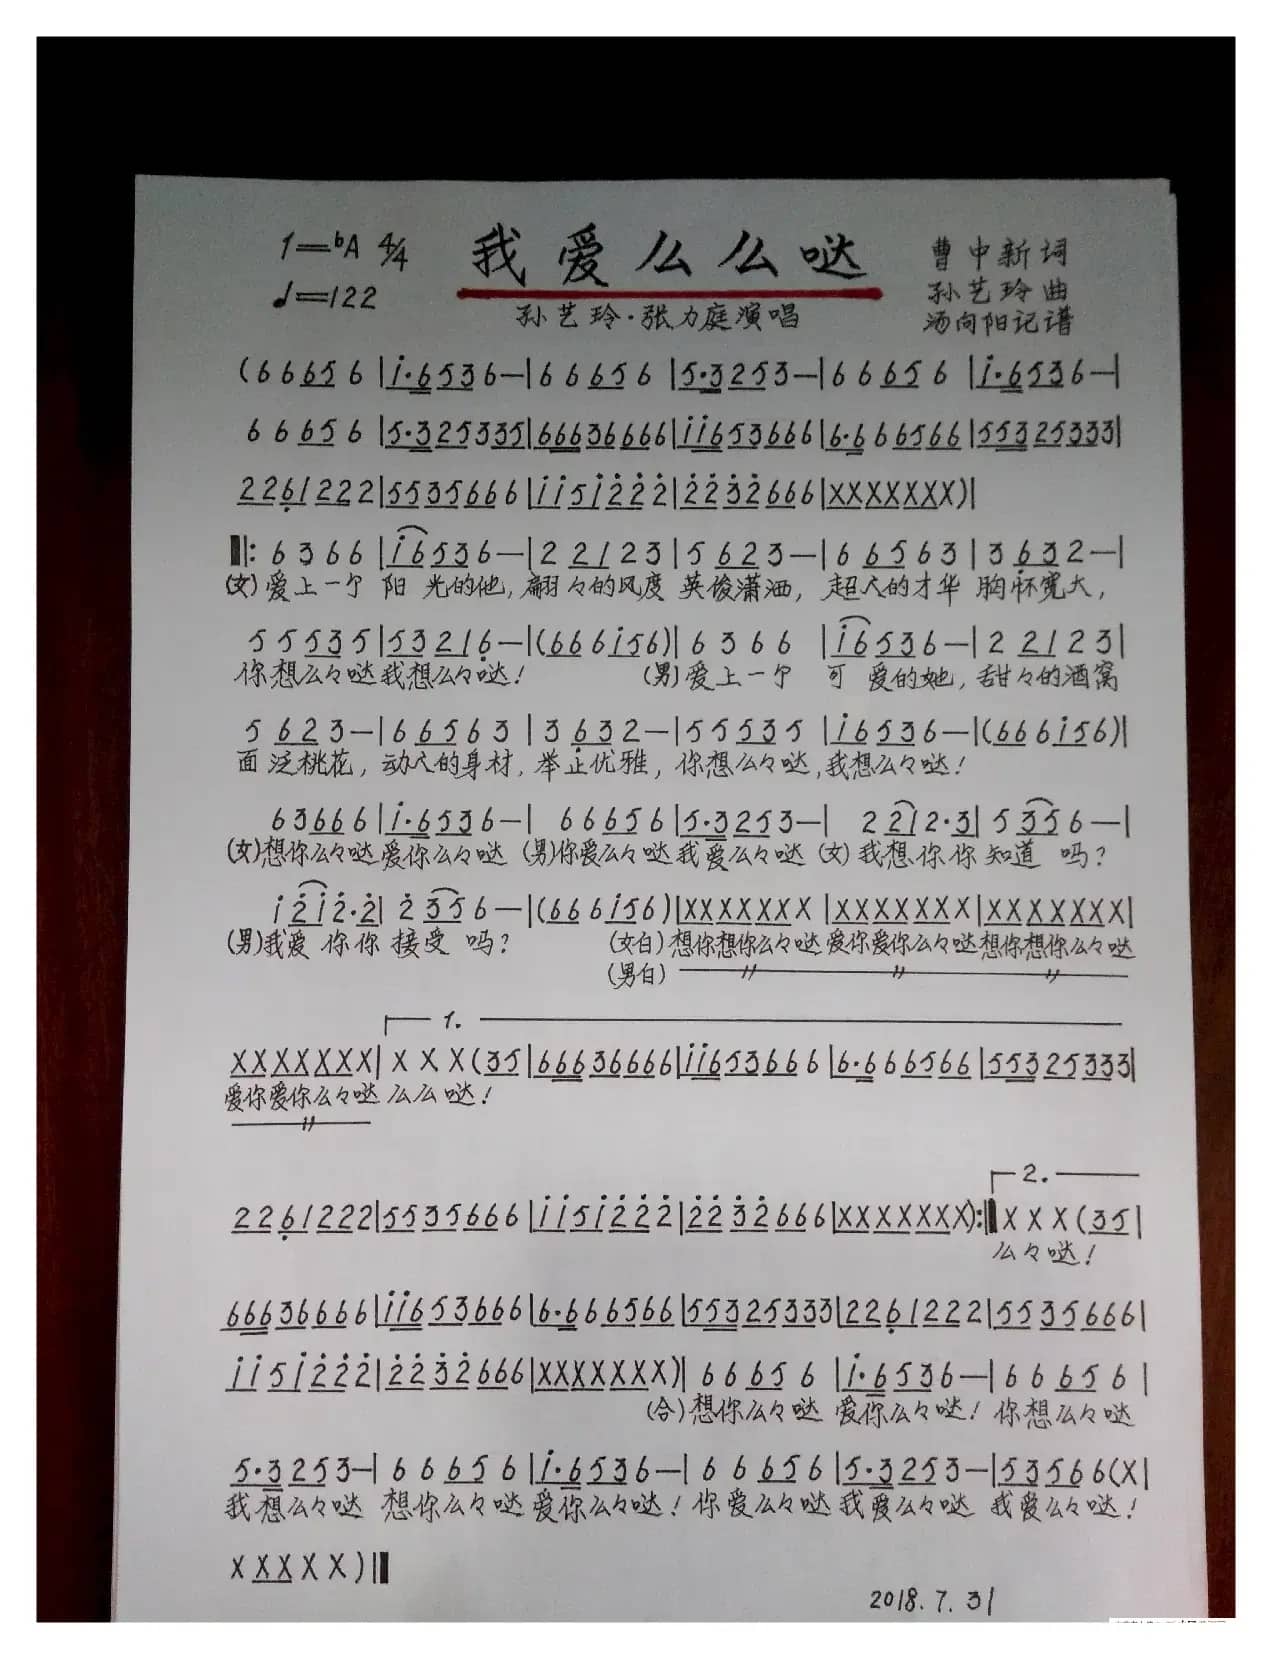 1=ᵇA 4/4 我爱么么哒 曹中新词
♩=122 孙艺玲·张力庭演唱 孙艺玲曲
汤向阳记谱
(6 6 6 5 6 |i·6 5 3 6 —| 6 6 6 5 6 |5·3 2 5 3 —| 6 6 6 5 6 |i·6 5 3 6 —|
6 6 6 5 6 |5·3 2 5 3 3 5|6 6 6 3 6 6 6 6|i i 6 5 3 6 6 6|6·6 6 6 5 6 6|5 5 3 2 5 3 3 3|
2 2 6 1 2 2 2|5 5 3 5 6 6 6|i i 5 i 2 2 2|2 2 3 2 6 6 6|X X X X X X X)|
‖: 6 3 6 6 |i 6 5 3 6 —| 2 2 1 2 3 | 5 6 2 3 —| 6 6 5 6 3 | 3 6 3 2 —|
(女)爱上一个 阳 光的他, 翩々的风度 英俊潇洒, 超人的才华 胸怀宽大,
5 5 5 3 5 |5 3 2 1 6 —|(6 6 6 i 5 6)| 6 3 6 6 |i 6 5 3 6 —| 2 2 1 2 3|
你想么々哒我想么々哒! (男)爱上一个 可 爱的她, 甜々的酒窝
5 6 2 3 —| 6 6 5 6 3 | 3 6 3 2 —| 5 5 5 3 5 |i 6 5 3 6 —|(6 6 6 i 5 6)|
面泛桃花, 动人的身材, 举止优雅, 你想么々哒,我想么々哒!
6 3 6 6 6 |i·6 5 3 6 —| 6 6 6 5 6 |5·3 2 5 3 —| 2 2 1 2·3| 5 3 5 6 —|
(女)想你么々哒爱你么々哒 (男)你爱么々哒我爱么々哒 (女)我想你你知道 吗?
i 2 i 2·2| 2 3 5 6 —|(6 6 6 i 5 6)|X X X X X X X |X X X X X X X|X X X X X X X|
(男)我爱 你你 接受 吗? (女白)想你想你么々哒 爱你爱你么々哒想你想你么々哒
(男白) 〃 〃 〃
1.
X X X X X X X| X X X (3 5|6 6 6 3 6 6 6 6|i i 6 5 3 6 6 6|6·6 6 6 5 6 6|5 5 3 2 5 3 3 3|
爱你爱你么々哒 么么哒!
〃
2.
2 2 6 1 2 2 2|5 5 3 5 6 6 6|i i 5 i 2 2 2|2 2 3 2 6 6 6|X X X X X X X):‖X X X (3 5|
么々哒!
6 6 6 3 6 6 6 6|i i 6 5 3 6 6 6|6·6 6 6 5 6 6|5 5 3 2 5 3 3 3|2 2 6 1 2 2 2|5 5 3 5 6 6 6|
i i 5 i 2 2 2|2 2 3 2 6 6 6|X X X X X X X)| 6 6 6 5 6 |i·6 5 3 6 —| 6 6 6 5 6 |
(合)想你么々哒 爱你么々哒! 你想么々哒
5·3 2 5 3 —| 6 6 6 5 6 |i·6 5 3 6 —| 6 6 6 5 6 |5·3 2 5 3 —|5 3 5 6 6 (X|
我想么々哒 想你么々哒 爱你么々哒! 你爱么々哒 我爱么々哒 我爱么々哒!
X X X X X )‖
2018.7.31